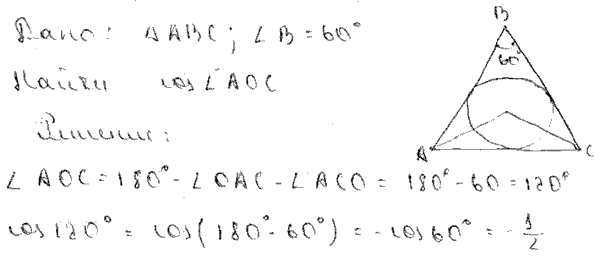 Дано: ΔABC; ∠B=60°
Найти cos∠AOC
Решение:
∠AOC=180°-∠OAC-∠ACO=180°-60=120°
cos120°=cos(180°-60°)=-cos60°=-1/2
B
60°
A
C